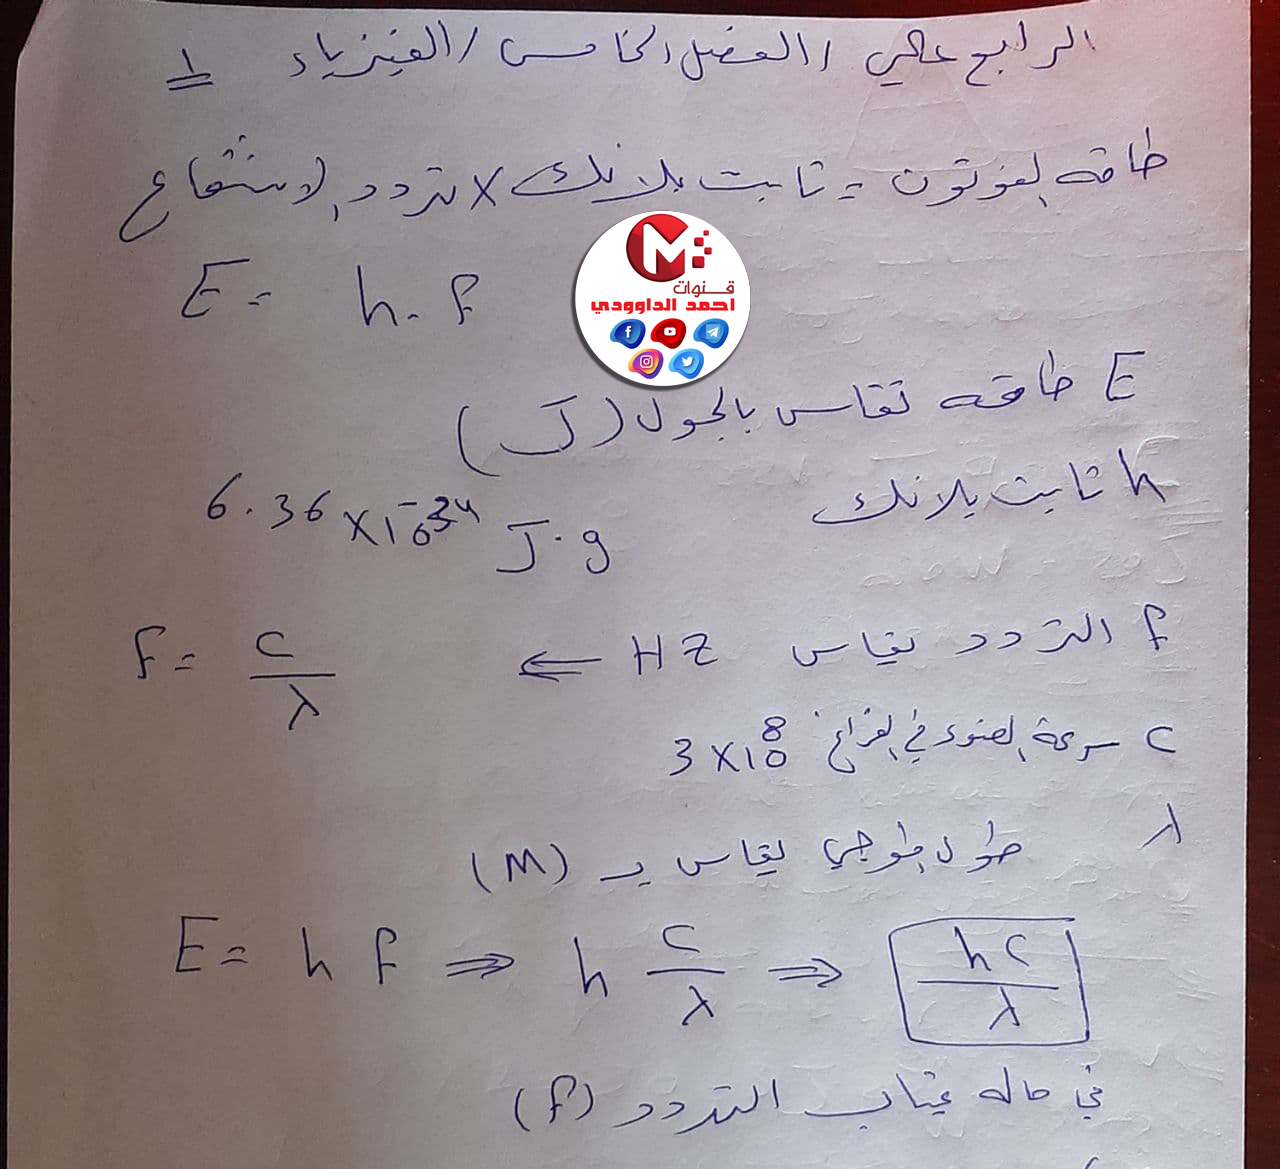 الرابع علمي / الفصل الخامس / الفيزياء 1
طاقه الفوتون = ثابت بلانك X تردد الاشعاع
E = h . f
M
قنوات
احمد الداوودي
E طاقه تقاس بالجول (J)
h ثابت بلانك
6.36 X 10⁻³⁴ J.g
f التردد يقاس HZ ⇐ F = c/λ
c سرعة الضوء في الفراغ 3 X 10⁸
λ طول الموجي يقاس بـ (M)
E = h f ⇒ h c/λ ⇒ hc/λ
في حاله غياب التردد (f)